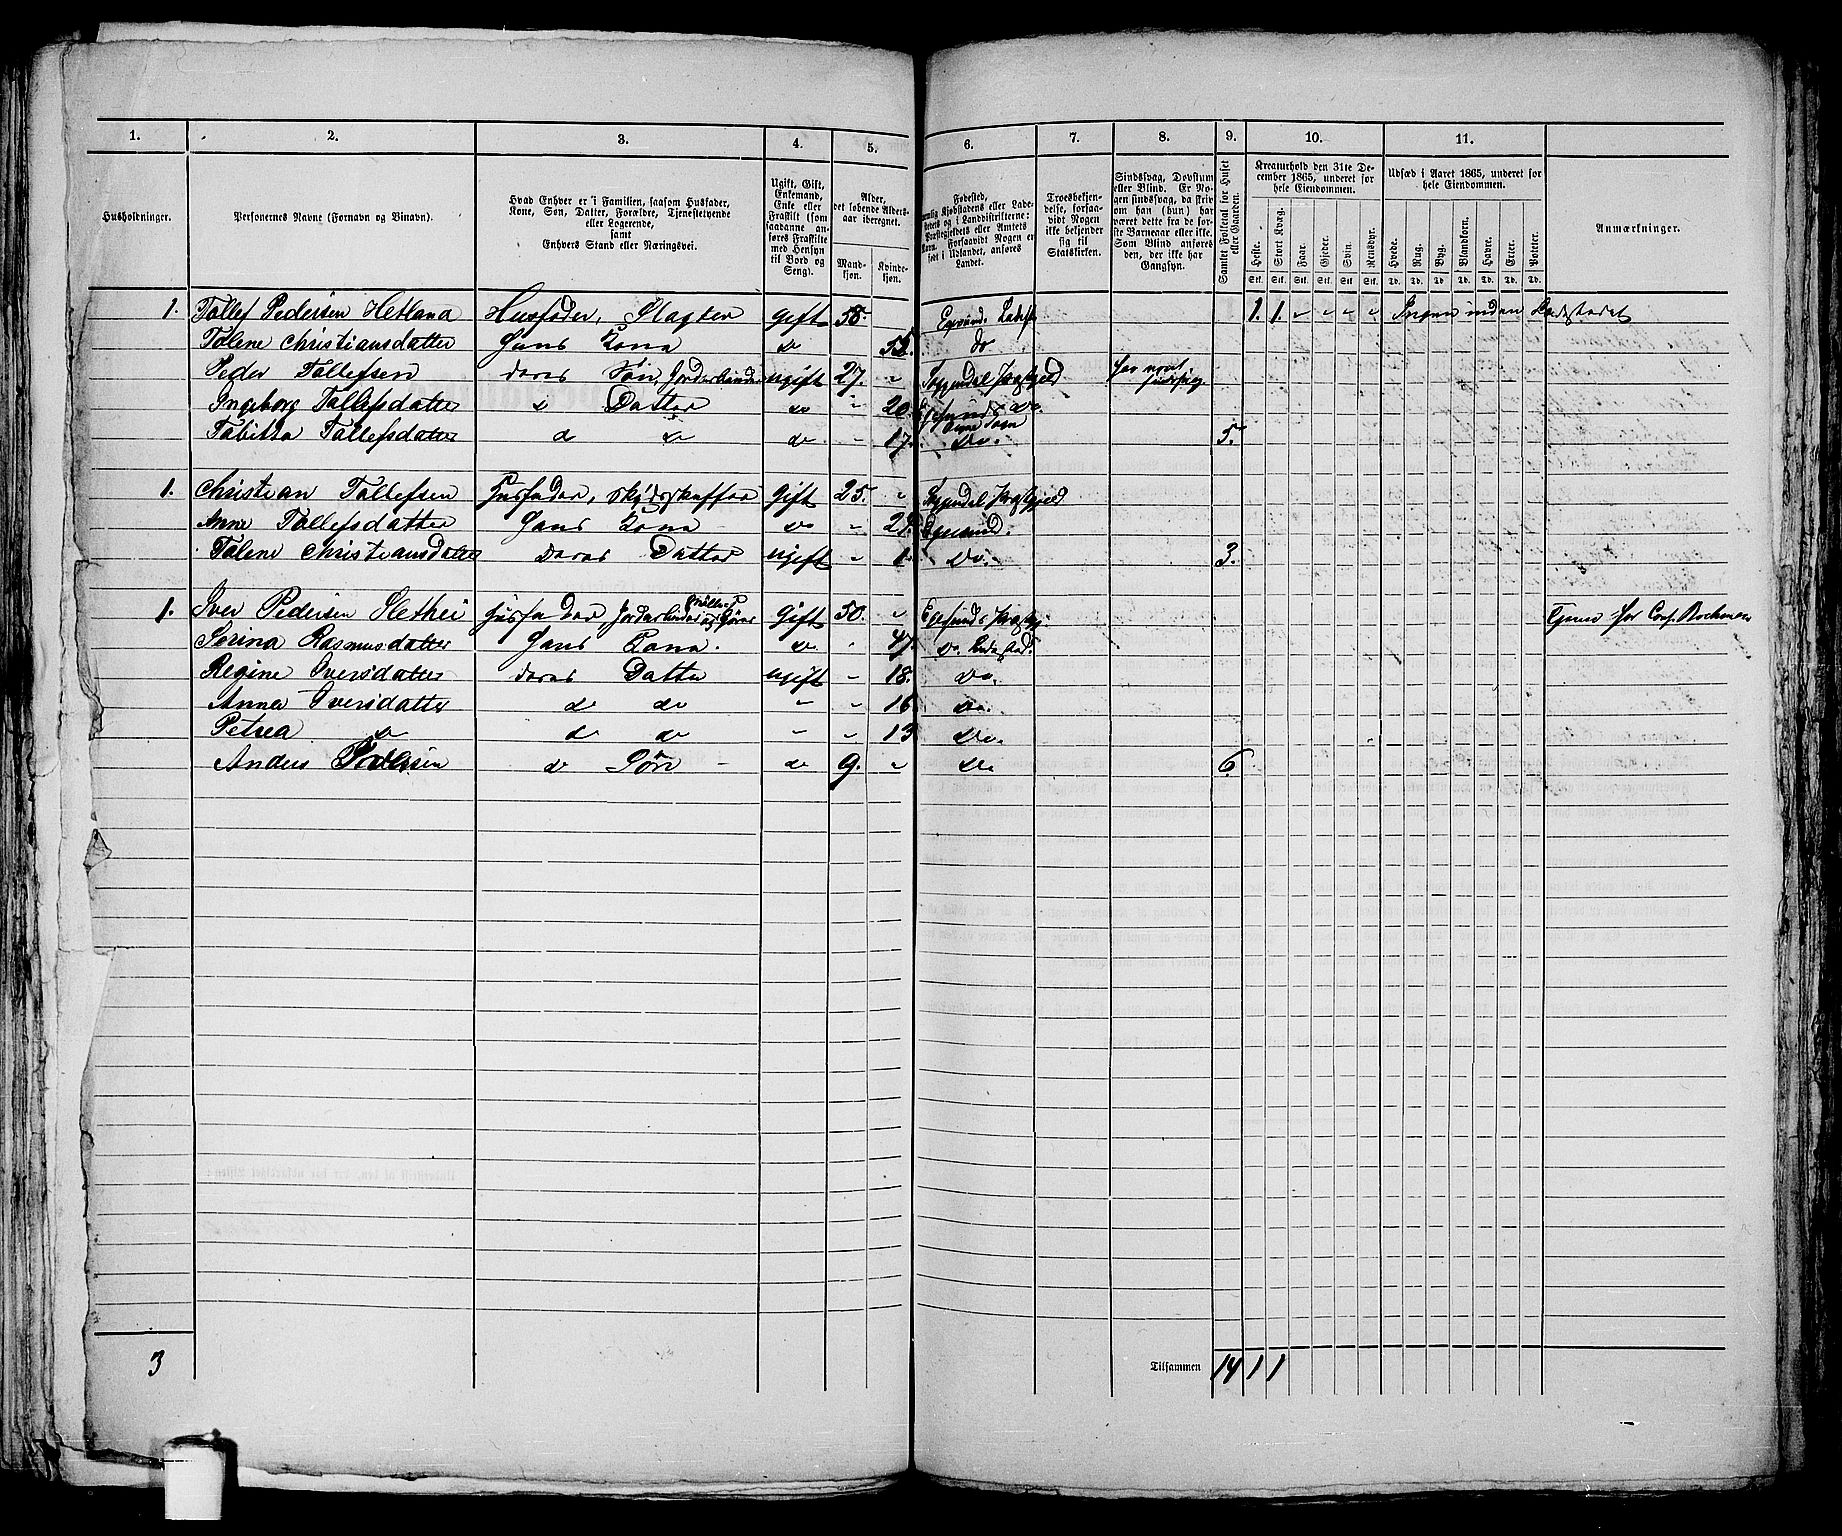 1. 2. 3. 4. 5. 6. 7. 8. 9. 10. 11.
Husholdninger.
Personernes Navne (Fornavn og Binavn).
Hvad Enhver er i Familien, saasom Husfader,
Kone, Søn, Datter, Forældre, Tjenestetyende
eller Logerende,
samt
Enhvers Stand eller Næringsvei.
Ugift, Gift,
Enkemand,
Enke eller
Fraskilt (som
saadanne an-
føres Fraskilte
med Hensyn
til Bord og
Seng).
Alder,
det løbende Alders-
aar iberegnet.
Mand-
kjøn.
Kvinde-
kjøn.
Fødested,
nemlig Kjøbstadens eller Lade-
stedets og i Landdistrikterne:
Præstegjeldets eller Amtets
Navn. Forsaavidt Nogen er
født i Udlandet, anføres
Landet.
Troesbekjen-
delse, forsaa-
vidt Nogen
ikke bekjender
sig til
Statskirken.
Sindssvag, Døvstum
eller Blind. Er No-
gen sindssvag, da skriv
om han (hun) har
været dette fra de før-
ste Barneaar eller ikke.
Som Blind anføres
den, der ikke har
Gangsyn.
Samlet Folketal for Huset
eller Gaarden.
Kreaturhold den 31te De-
cember 1865, underet for
hele Eiendommen.
Heste. Stort Kvæg. Faar. Gjeder. Svin. Rensdyr.
Stk. Stk. Stk. Stk. Stk. Stk.
Udsæd i Aaret 1865, underet for
hele Eiendommen.
Hvede. Rug. Byg. Blandkorn. Havre. Erter. Poteter.
Td. Td. Td. Td. Td. Td. Td.
Anmærkninger.
1. Tollef Pedersen Hetland Husfader, Slagter gift 58. Egersund. Ladest 1. 1. " " " " Ingen inden Ladestedet
Tolene Christiansdatter Hans Kone do do
Peder Tollefsen deres Søn, ugift 27. " Præstgjeld
Ingeborg Tollefsdatter d Datter do " 20. do.
Tabitta Tollefsdatter d do do " 17. do. 5.
1. Christian Tollefsen Husfader, gift 25. " Præstgjeld
Anne Tollefsdatter Hans Kone do " Egersund.
Tolene Christiansdatter deres Datter ugift " 1. do. 3.
1. Iver Pedersen Husfader, gift 50. "
Serina Rasmusdatter Hans Kone. do 47. do. Ladested.
Regine Iversdatter deres Datter ugift " 18. do.
Anna Iversdatter d do " " 16 do.
Petrea do d do " " 13 do.
Anders d Søn " do 9. " do 6
3 Tilsammen 14 1 1